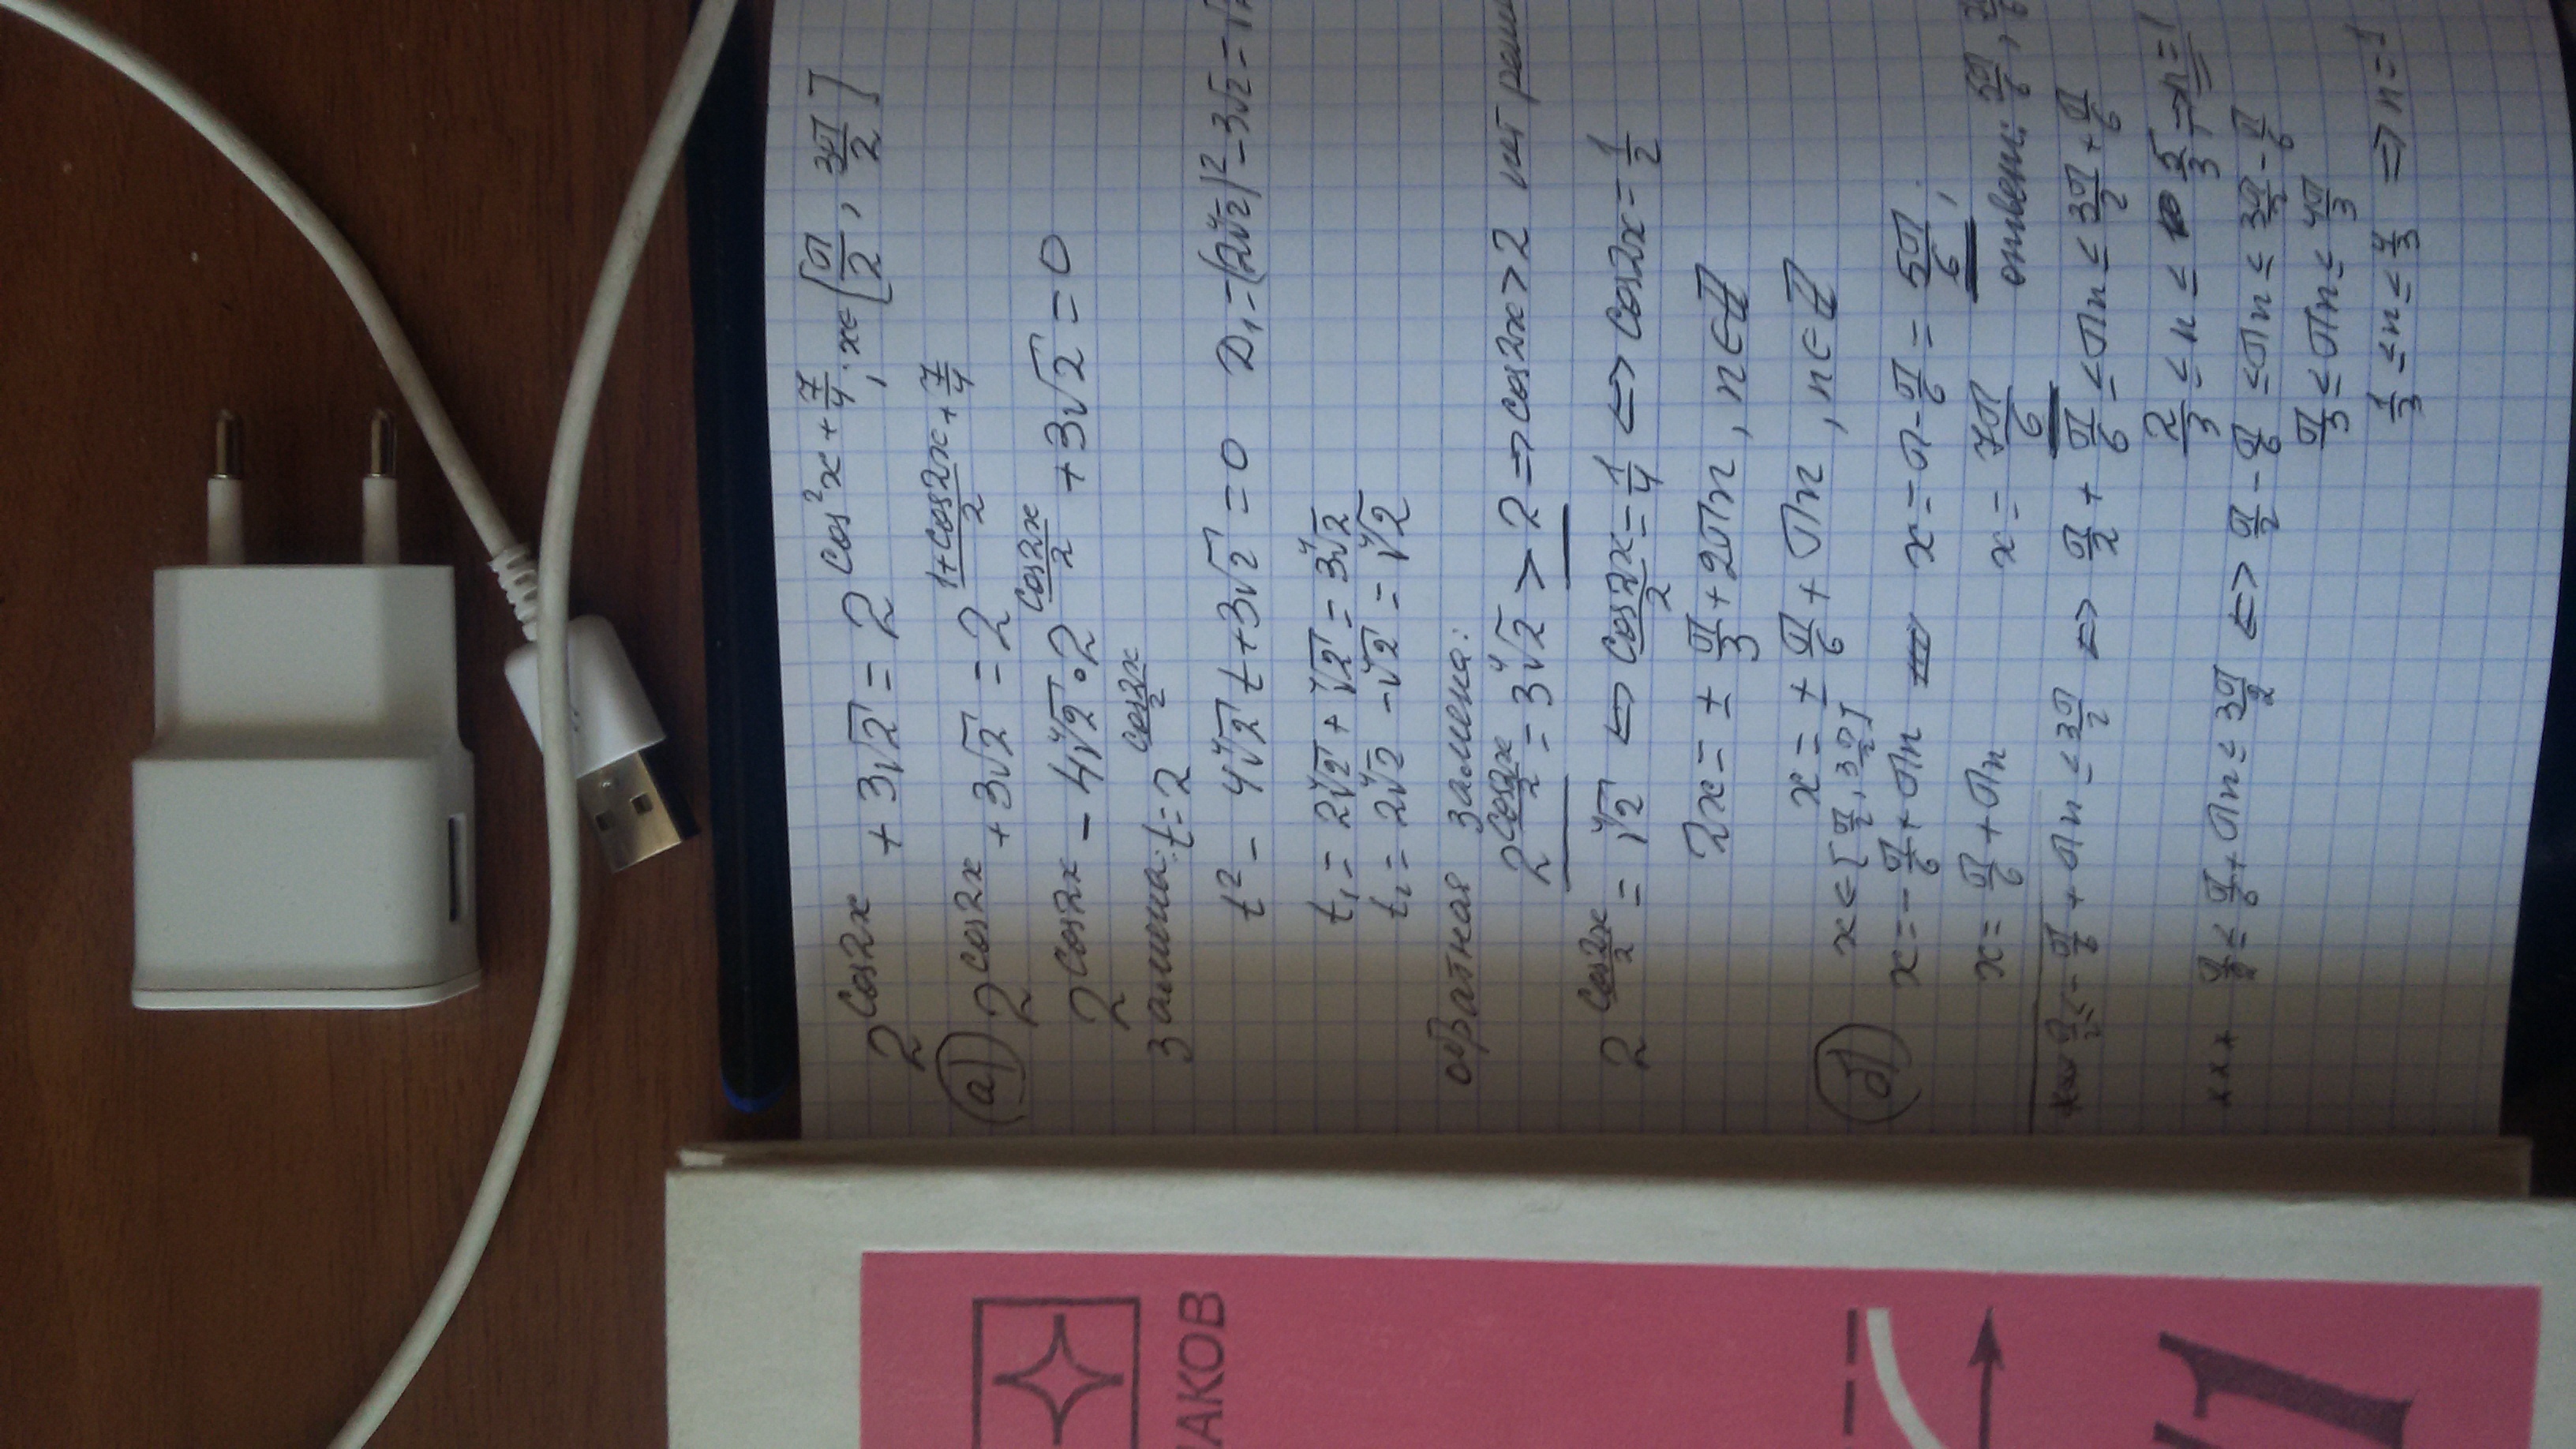 2^(cos2x) + 3√2 = 2^(cos²x + 7/4), x∈[π/2, 3π/2]
а) 2^(cos2x) + 3√2 = 2^((1+cos2x)/2 + 7/4)
2^(cos2x) − 4⁴√2 · 2^(cos2x/2) + 3√2 = 0
Замена: t = 2^(cos2x/2)
t² − 4⁴√2 t + 3√2 = 0 D₁ = (2⁴√2)² − 3√2 =
t₁ = 2⁴√2 + ⁴√2 = 3⁴√2
t₂ = 2⁴√2 − ⁴√2 = ⁴√2
обратная замена:
2^(cos2x/2) = 3⁴√2 > 2 => cos2x > 2 нет
2^(cos2x/2) = ⁴√2 <=> cos2x/2 = 1/4 <=> cos2x = 1/2
2x = ± π/3 + 2πn, n∈Z
x = ± π/6 + πn, n∈Z
б) x∈[π/2, 3π/2]
x = −π/6 + πn x = π − π/6 = 5π/6;
x = π/6 + πn x = 7π/6 ответ: 5π/6,
π/2 ≤ −π/6 + πn ≤ 3π/2 <=> π/2 + π/6 ≤ πn ≤ 3π/2 + π/6
2/3 ≤ n ≤ 5/3 => n = 1
π/2 ≤ π/6 + πn ≤ 3π/2 <=> π/2 − π/6 ≤ πn ≤ 3π/2 − π/6
π/3 ≤ πn ≤ 4π/3
1/3 ≤ n ≤ 4/3 => n = 1
АКОВ